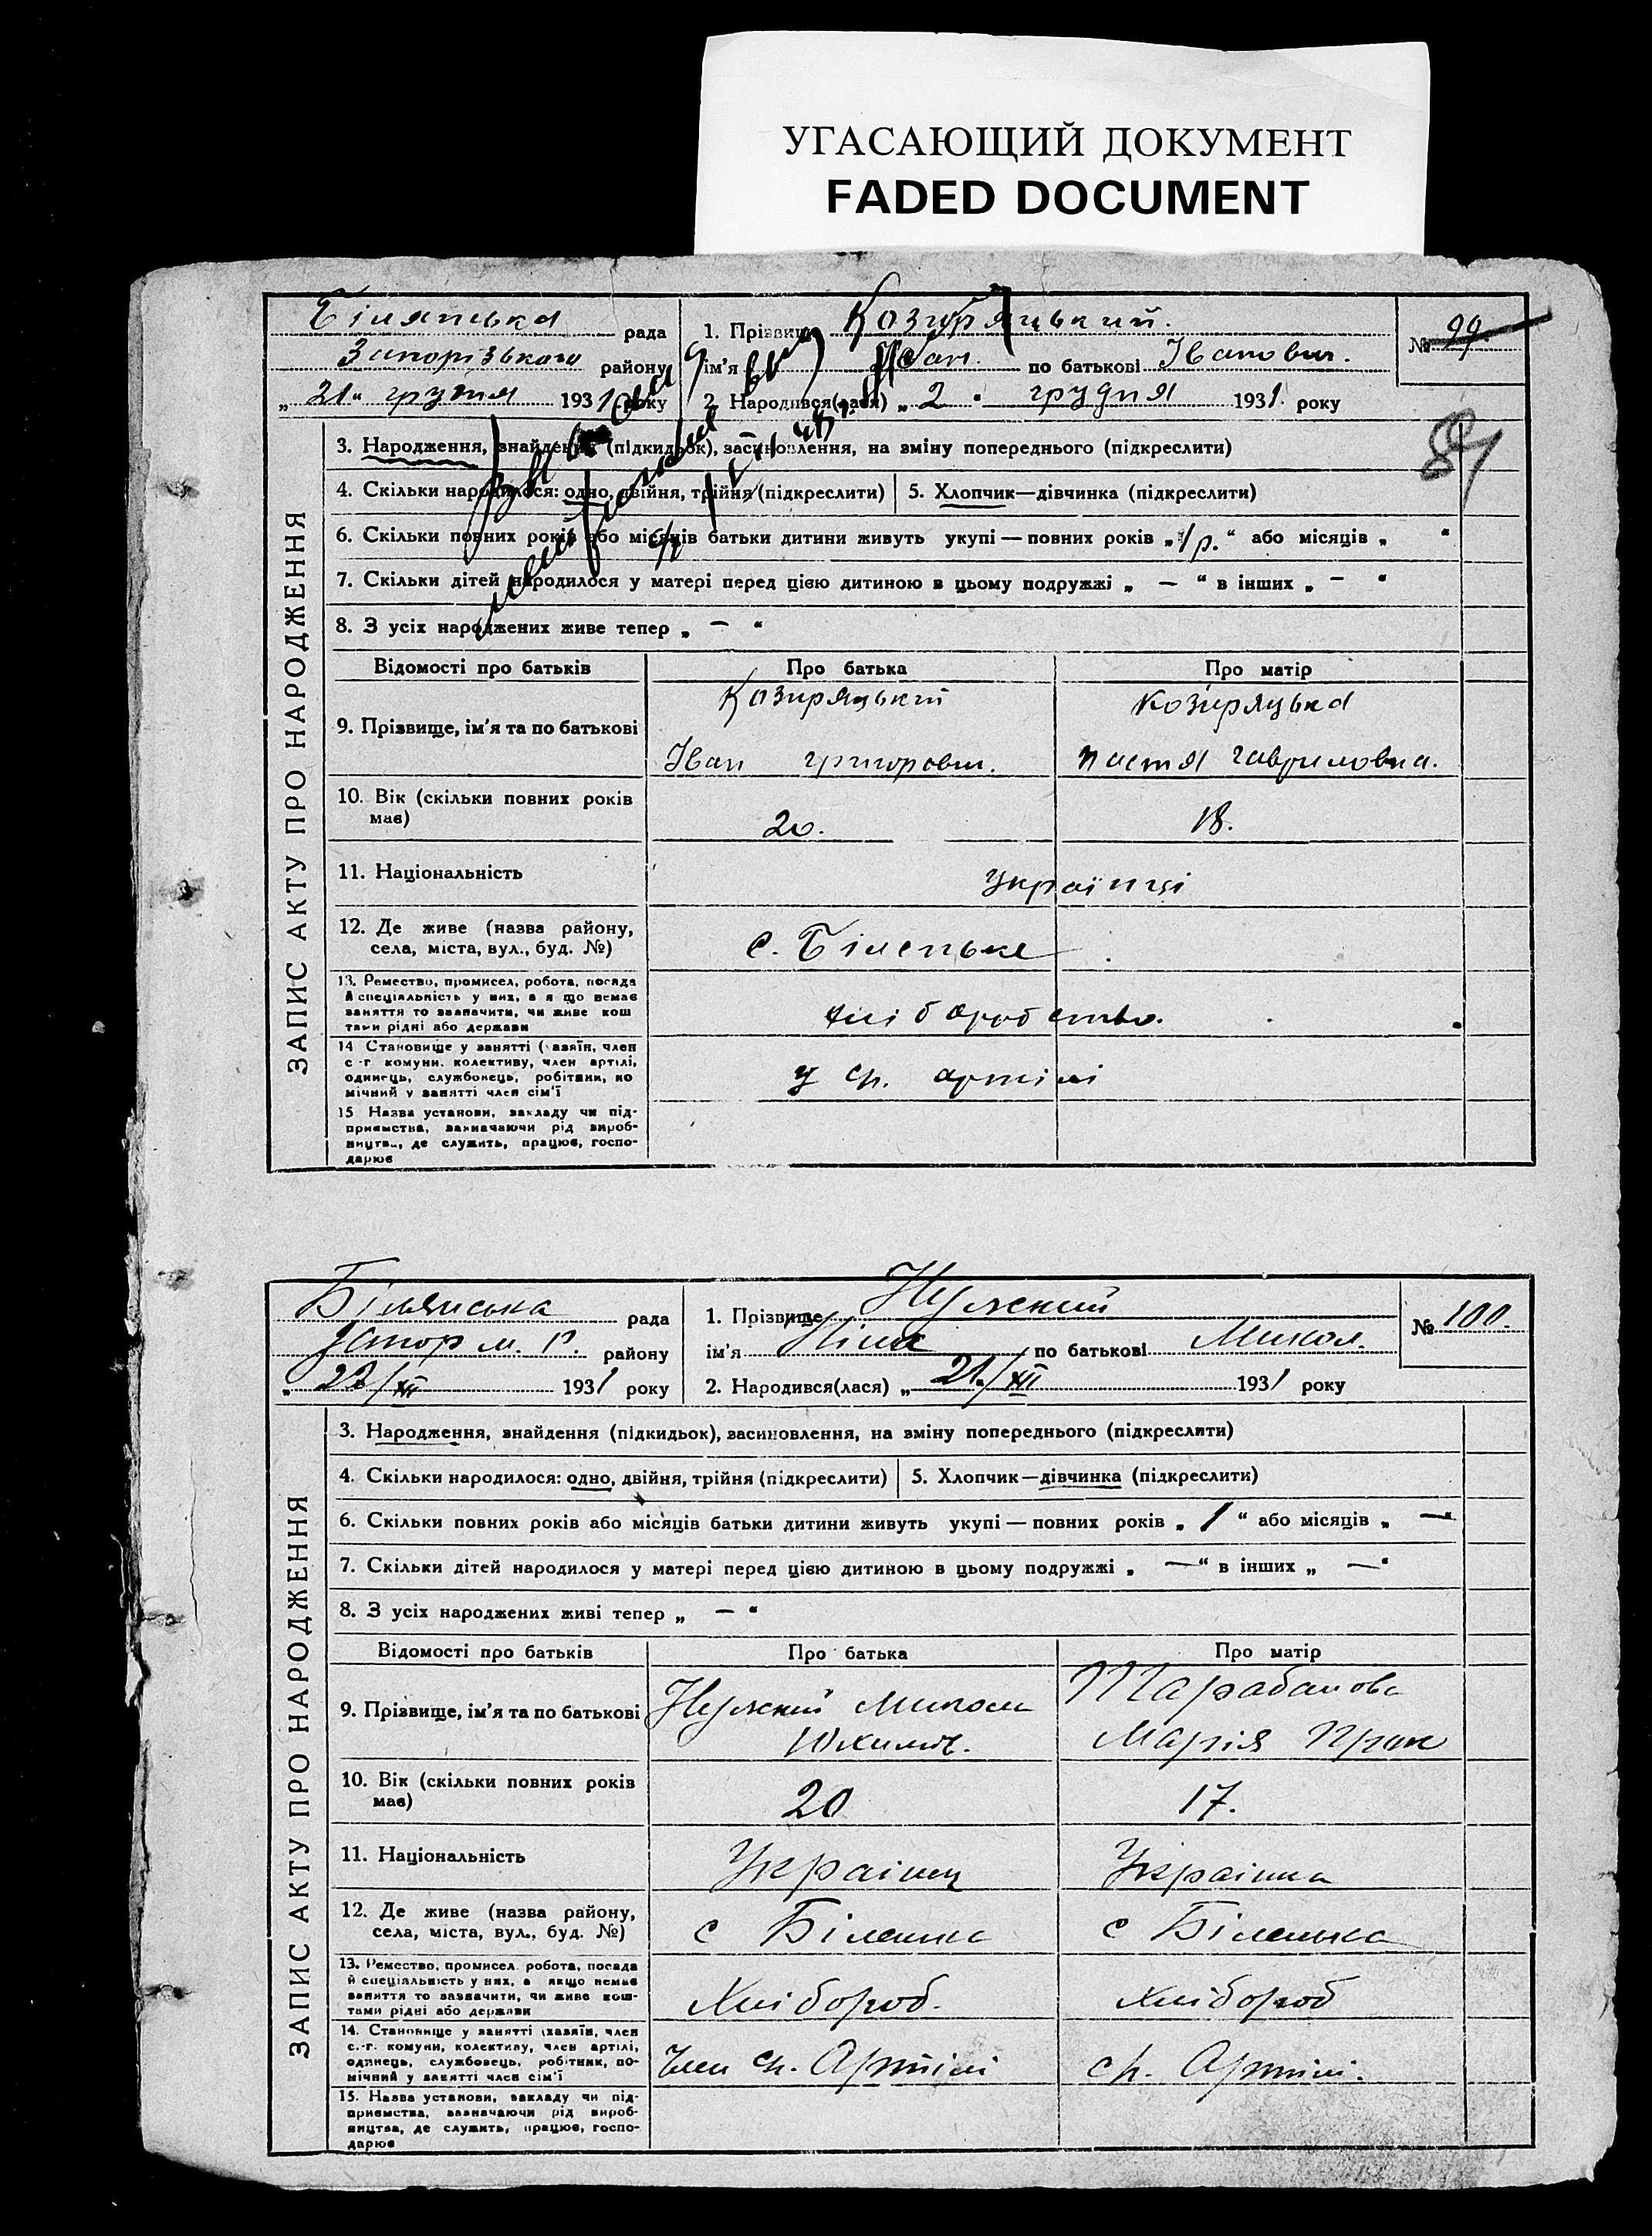 УГАСАЮЩИЙ ДОКУМЕНТ
FADED DOCUMENT
Білянська рада
Запорізького району
„21“ грудня 1931 року
1. Прізвище Козиряцький.
ім'я Іван. по батькові Іванович.
2. Народився(лася) „2“ грудня 1931 року
№ 99
84
ЗАПИС АКТУ ПРО НАРОДЖЕННЯ
3. Народження, знайдення (підкидьок), засиновлення, на зміну попереднього (підкреслити)
4. Скільки народилося: одно, двійня, трійня (підкреслити) 5. Хлопчик—дівчинка (підкреслити)
6. Скільки повних років або місяців батьки дитини живуть укупі — повних років „1 р.“ або місяців „ “
7. Скільки дітей народилося у матері перед цією дитиною в цьому подружжі „ — “ в інших „ — “
8. З усіх народжених живе тепер „ — “
Відомості про батьків Про батька Про матір
9. Прізвище, ім'я та по батькові
Козиряцький
Іван Григорович.
Козиряцька
Настя Гавриловна.
10. Вік (скільки повних років
має)
20. 18.
11. Національність
Українці
12. Де живе (назва району,
села, міста, вул., буд. №)
с. Біленьке
13. Ремество, промисел, робота, посада
й спеціальність у них, а я що немає
заняття то зазначити, чи живе кош
тами рідні або держави
хліборобство.
14 Становище у занятті (хазяїн, член
с-г комуни, колективу, член артілі,
одинець, службовець, робітник, по
мічний у занятті член сім'ї
у сг. артілі
15 Назва установи, закладу чи під-
приємства, зазначаючи рід вироб-
ництва, де служить, працює, госпо-
дарює
Білянська рада
Запор м. Р. району
„22/XII 1931 року
1. Прізвище Нужний
ім'я Ніна по батькові Микол.
2. Народився(лася) „21/XII 1931 року
№ 100.
ЗАПИС АКТУ ПРО НАРОДЖЕННЯ
3. Народження, знайдення (підкидьок), засиновлення, на зміну попереднього (підкреслити)
4. Скільки народилося: одно, двійня, трійня (підкреслити) 5. Хлопчик—дівчинка (підкреслити)
6. Скільки повних років або місяців батьки дитини живуть укупі — повних років „ 1 “ або місяців „ — “
7. Скільки дітей народилося у матері перед цією дитиною в цьому подружжі „ — “ в інших „ — “
8. З усіх народжених живі тепер „ — “
Відомості про батьків Про батька Про матір
9. Прізвище, ім'я та по батькові
Нужний Микола
Юхимов.
Тарабанова
Марія Прок
10. Вік (скільки повних років
має)
20 17.
11. Національність
Українец Українка
12. Де живе (назва району,
села, міста, вул., буд. №)
с Біленька с Біленька
13. Ремество, промисел робота, посада
й спеціальність у них, а якщо немає
заняття то зазначити, чи живе кош-
тами рідні або держави
Хлібороб. хлібороб
14. Становище у занятті (хазяїн, член
с.-г. комуни, колективу, член артілі,
одинець, службовець, робітник, по-
мічний у занятті член сім'ї
Член сг. Артілі сг. Артілі.
15. Назва установи, закладу чи під-
приємства, зазначаючи рід вироб-
ництва, де служить, працює, госпо-
дарює